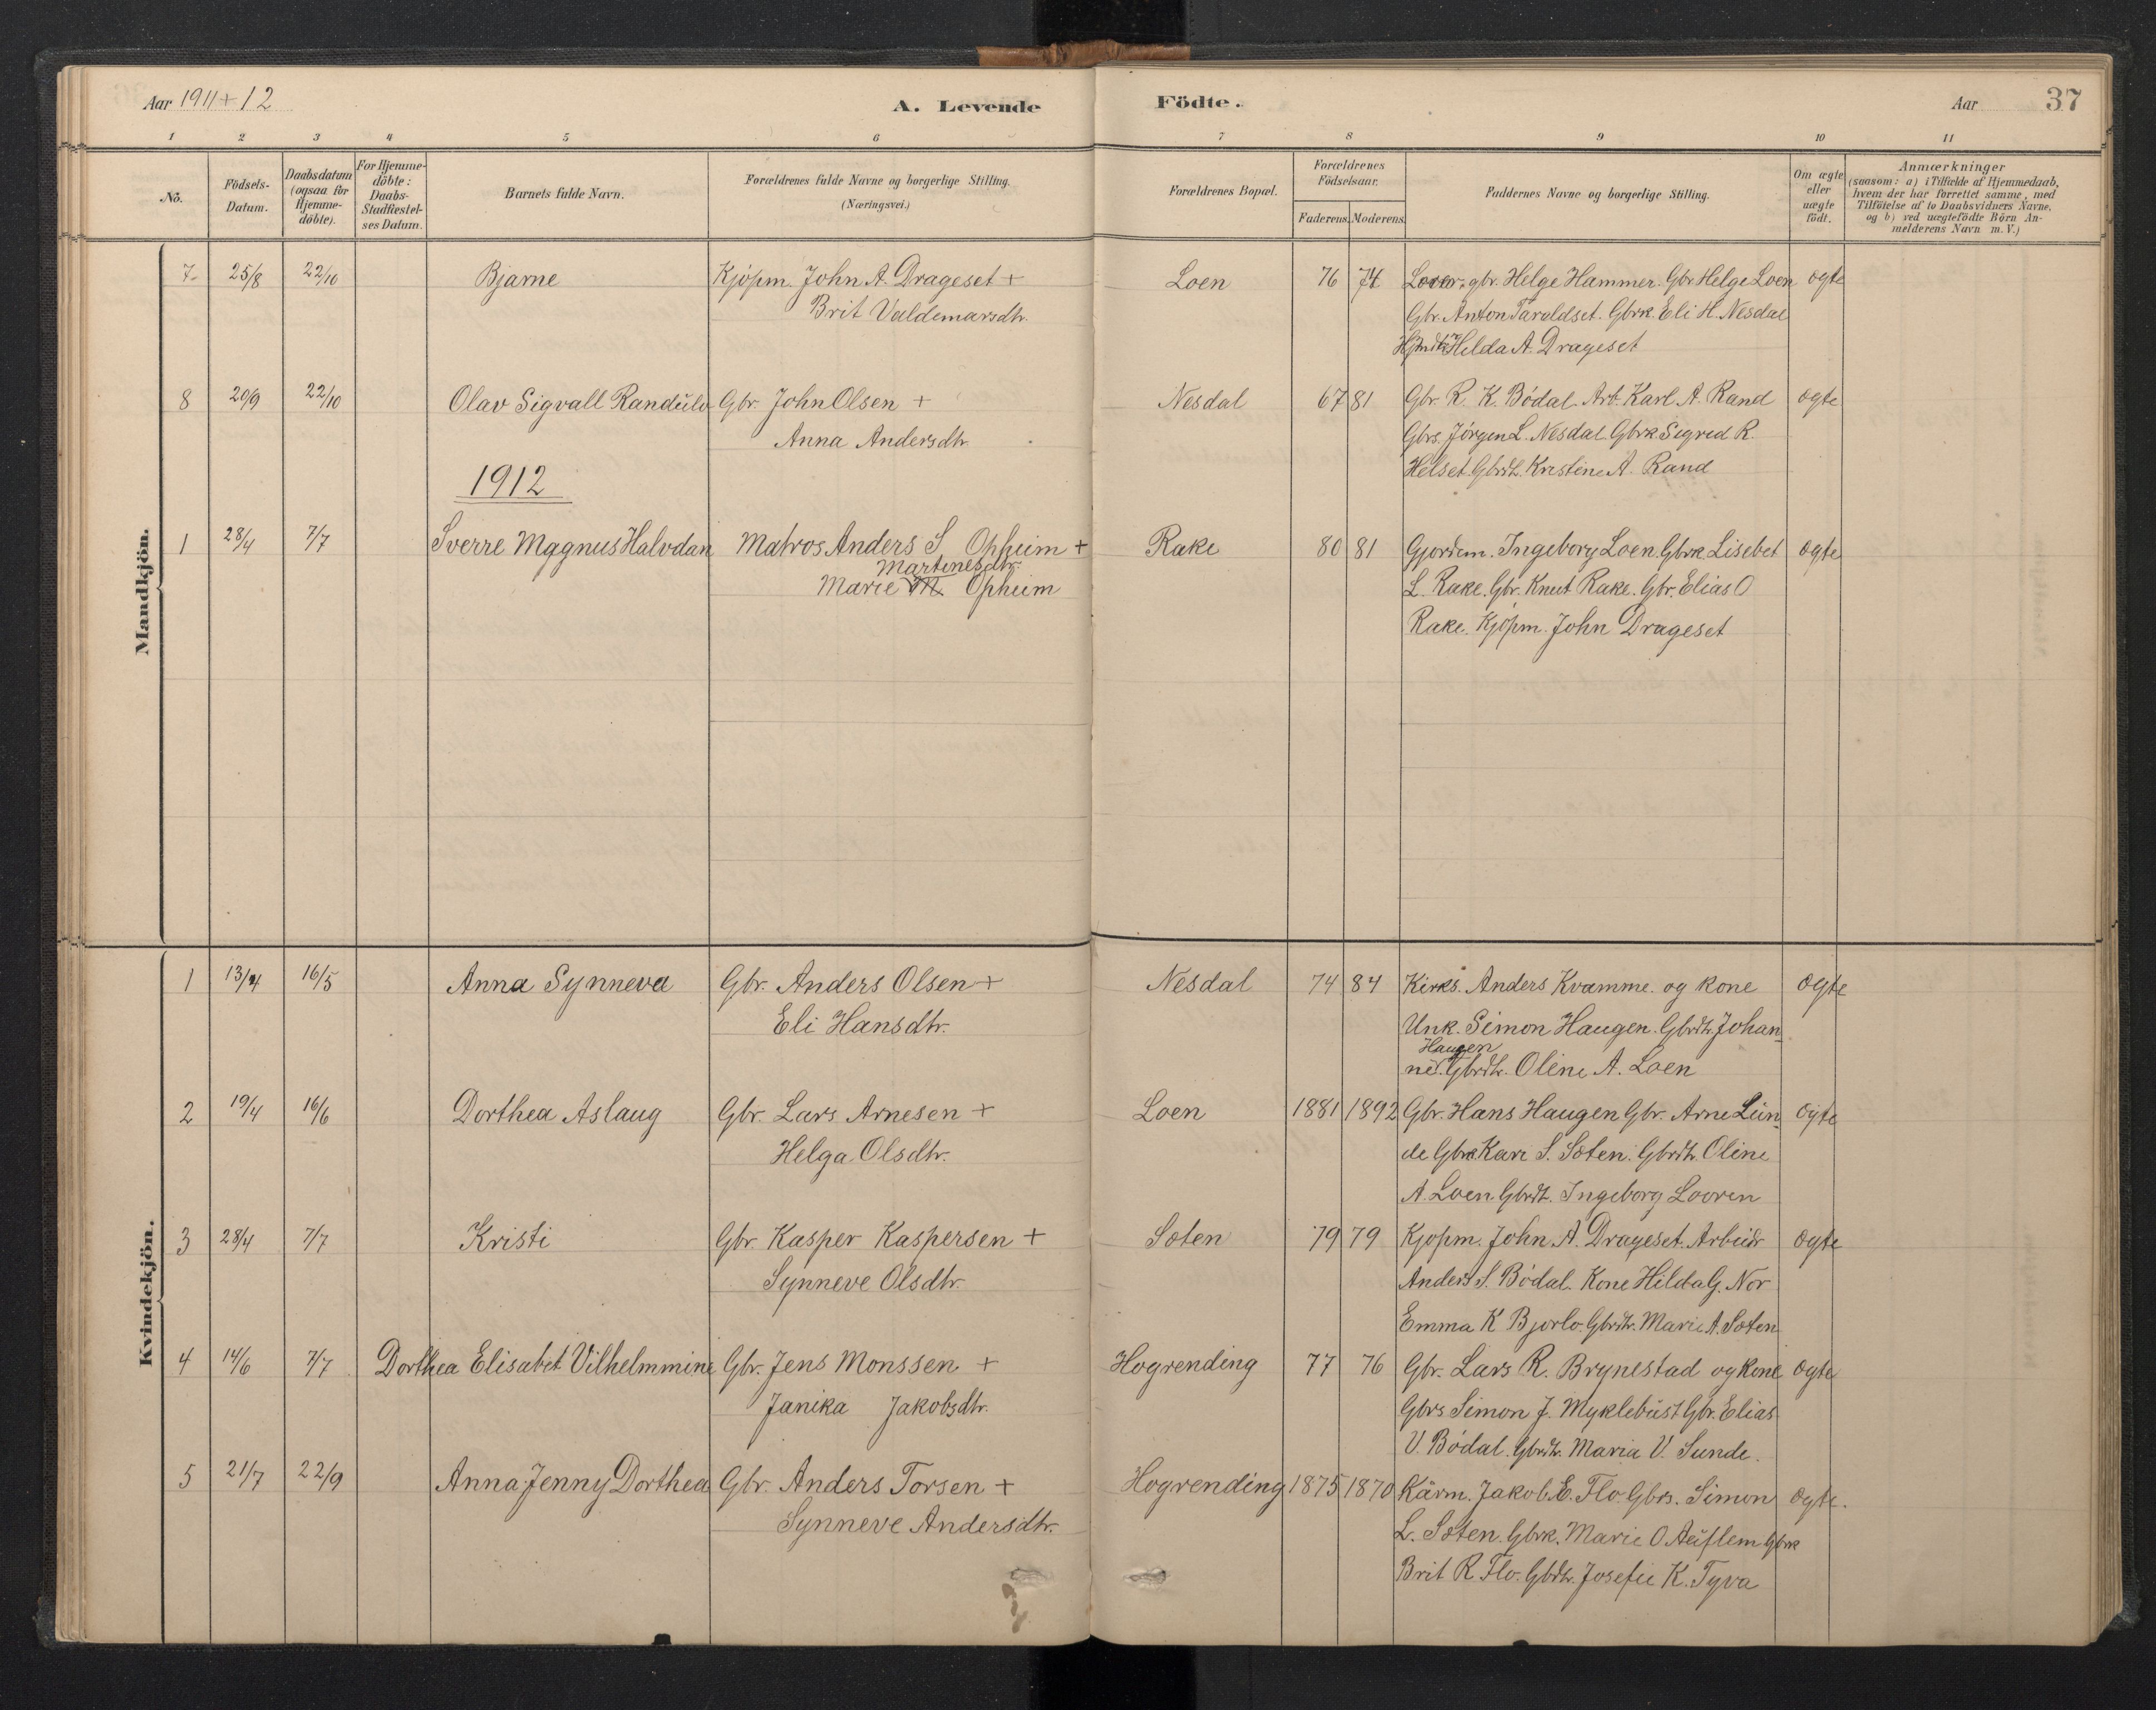 Aar 1911+12
A. Levende Födte.
Aar 37
1 2 3 4 5 6 7 8 9 10 11
No.
Födsels-Datum.
Daabsdatum (ogsaa for Hjemme-döbte).
For Hjemme-döbte: Daabs-Stadfæstel-ses Datum.
Barnets fulde Navn.
Forældrenes fulde Navne og borgerlige Stilling. (Næringsvei.)
Forældrenes Bopæl.
Forældrenes Födselsaar.
Faderens. Moderens.
Faddernes Navne og borgerlige Stilling.
Om ægte eller uægte födt.
Anmærkninger
(saasom: a) i Tilfælde af Hjemmedaab,
hvem der har forrettet samme, med
Tilföielse af to Daabsvidners Navne,
og b) ved uægtefödte Börn An-
melderens Navn m. V.)
Mandkjön.
7 25/8 22/10 Bjarne Kjöpm. John A. Drageset + Loen 76 74 gbr. Helge Hammer. Gbr Helge Loen ægte
Brit Valdemarsdtr. Gbr. Anton Taraldset. Gbrk. Eli H. Nesdal
Hilda A. Drageset
8 20/9 22/10 Olav Sigvall Randulv Gbr. John Olsen + Nesdal 67 81 Gbr. R. K. Bödal. Arb. Karl A. Rand ægte
Anna Andersdtr. Gbrs. Jörgen L. Nesdal Gbrk. Sigrid R.
Helset Gbrdtr. Kristine A. Rand
1912
1 28/4 7/7 Sverre Magnus Halvdan Matros Anders S. Opheim + Rake 80 81 Gjordm. Ingeborg Loen. Gbrk. Lisebet ægte
Martinesdtr.
Marie M. Opheim L. Rake. Gbr. Knut Rake. Gbr. Elias O
Rake. Kjöpm. John Drageset
Kvindekjön.
1 13/4 16/5 Anna Synneva Gbr. Anders Olsen + Nesdal 74 84 Kirks. Anders Kvamme. og kone ægte
Eli Hansdtr. Unk. Simon Haugen. Gbrdtr. Johan-
Haugen
ne. Gbrdtr. Oline A. Loen
2 19/4 16/6 Dorthea Aslaug Gbr. Lars Arnesen + Loen 1881 1892 Gbr. Hans Haugen Gbr. Arne Lun- ægte
Helga Olsdtr. de Gbrk Kari S. Sæten. Gbrdtr. Oline
A. Loen. Gbrdt. Ingeborg Looren
3 28/4 7/7 Kristi Gbr. Kasper Kaspersen + Sæten 79 79 Kjopm. John A. Drageset. Arbeidr ægte
Synneve Olsdtr. Anders S. Bödal. Kone Hilda G. Nor
Emma K Bjorlo. Gbrdtr. Marie A. Sæten
4 14/6 7/7 Dorthea Elisabet Vilhelmmine Gbr. Jens Monssen + Hogrending 77 76 Gbr. Lars R. Brynestad og kone ægte
Janika Jakobsdtr. Gbrs Simon J. Myklebust Gbr. Elias
V. Bödal. Gbrdtr. Maria V. Sunde.
5 21/7 22/9 Anna Jenny Dorthea Gbr. Anders Torsen + Hogrending 1875 1870 Kårm. Jakob E. Flo. Gbrs. Simon ægte.
Synneve Andersdtr. L. Sæten. Gbrk. Marie O. Auflem Gbrk
Brit R Flo. Gbdtr. Josefie K. Tyva